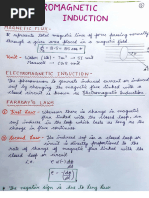 ELECTROMAGNETIC
INDUCTION
MAGNETIC FLUX:-
It represents total magnetic lines of force passing normally
through a given area placed in a magnetic field.
Unit - Weber (Wb)
ELECTROMAGNETIC INDUCTION-
The phenomenon to generate induced current or induced
emf by changing the magnetic field linked with
closed circuit is known as Electromagnetic Induction.
FARADAY'S LAWS
First Law: Whenever there is change in magnetic
flux linked with the closed loop or circuit, an
emf induces in the loop which lasts as long as change in
flux continues.
Second Law: The induced emf in a closed loop or
circuit is directly proportional to the rate of
change of magnetic flux linked with the
closed loop or circuit.
* The negative sign is due to Lenz's law